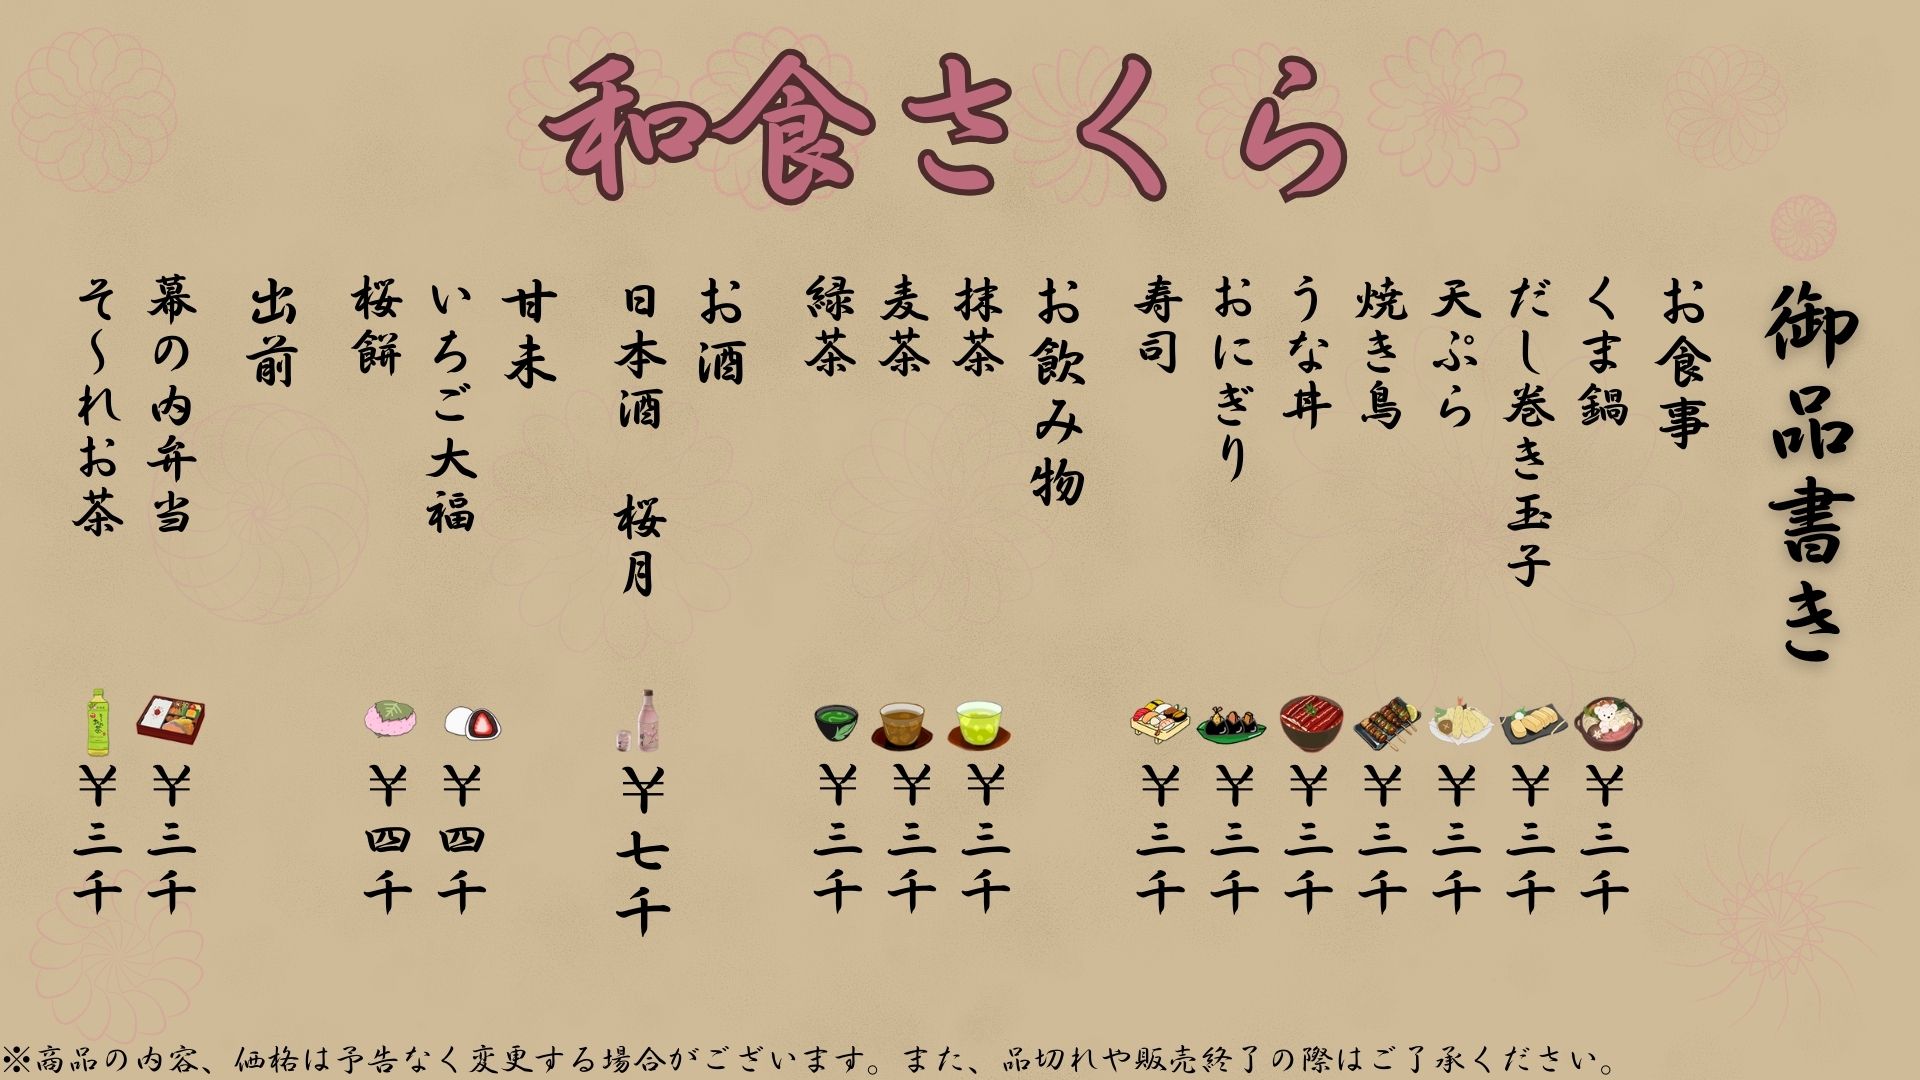 和食さくら
御品書き
お食事
くま鍋 ¥三千
だし巻き玉子 ¥三千
天ぷら ¥三千
焼き鳥 ¥三千
うな丼 ¥三千
おにぎり ¥三千
寿司 ¥三千
お飲み物
抹茶 ¥三千
麦茶 ¥三千
緑茶 ¥三千
お酒
日本酒 桜月 ¥七千
甘未
いちご大福 ¥四千
桜餅 ¥四千
出前
幕の内弁当 ¥三千
そ〜れお茶 ¥三千
※商品の内容、価格は予告なく変更する場合がございます。また、品切れや販売終了の際はご了承ください。